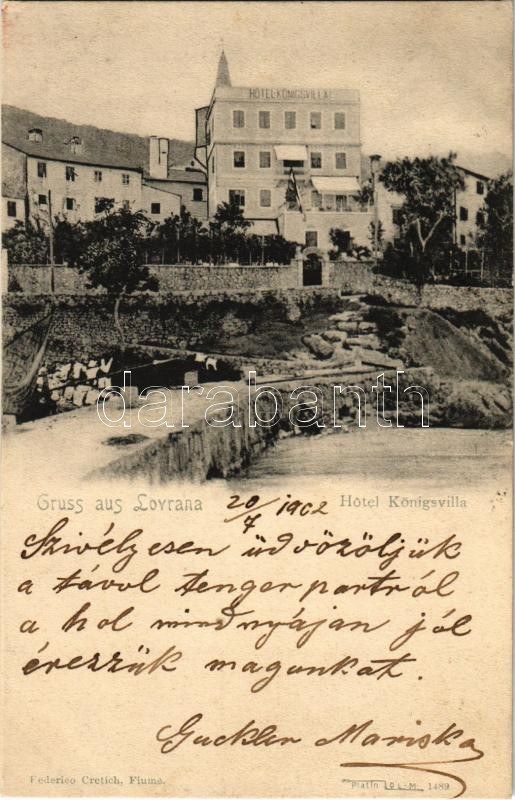 HÔTEL KÖNIGSVILLA
darabanth
Gruss aus Lovrana
20/7 1902
Hôtel Königsvilla
Szivélyesen üdvözöljük
a távol tenger partról
a hol mindnyájan jól
érezzük magunkat.
Guckler Mariska
Federico Cretich, Fiume.
Platin D L.-M. 1489